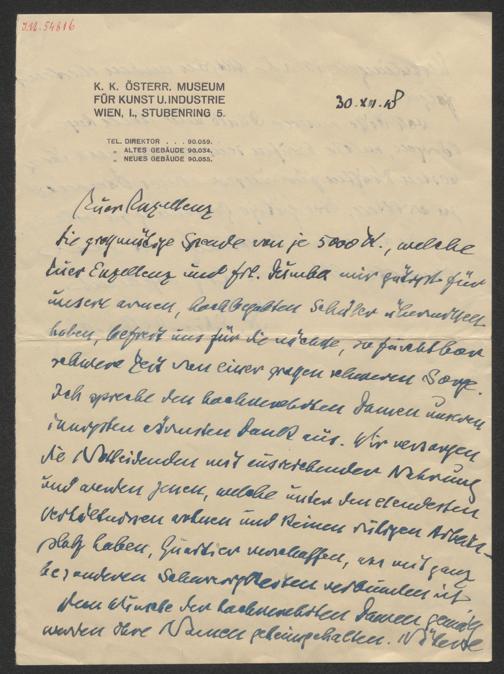 I.N. 54816
K. K. ÖSTERR. MUSEUM
FÜR KUNST U. INDUSTRIE
WIEN, I., STUBENRING 5.
30. XII. 18
TEL. DIREKTOR . . . 90.059.
ALTES GEBÄUDE 90.034.
NEUES GEBÄUDE 90.055.
Euer Exzellenz
die großmütige Spende von je 5000 K., welche
Euer Exzellenz und Frl. Dumba mir gütigst für
unsere armen, hochbegabten Schüler übermittelt
haben, befreit uns für die nächste, so furchtbar
schwere Zeit von einer großen schweren Sorge.
Ich spreche den hochverehrten Damen unseren
innigsten wärmsten Dank aus. Wir versorgen
die Notleidenden mit ausreichender Nahrung
und werden jenen, welche unter den elendesten
Verhältnissen wohnen und keinen ruhigen Arbeits-
platz haben, Quartier verschaffen, was mit ganz
besonderen Schwierigkeiten verbunden ist
Dem Wunsche der hochverehrten Damen gemäß
werden ihre Namen geheimgehalten.